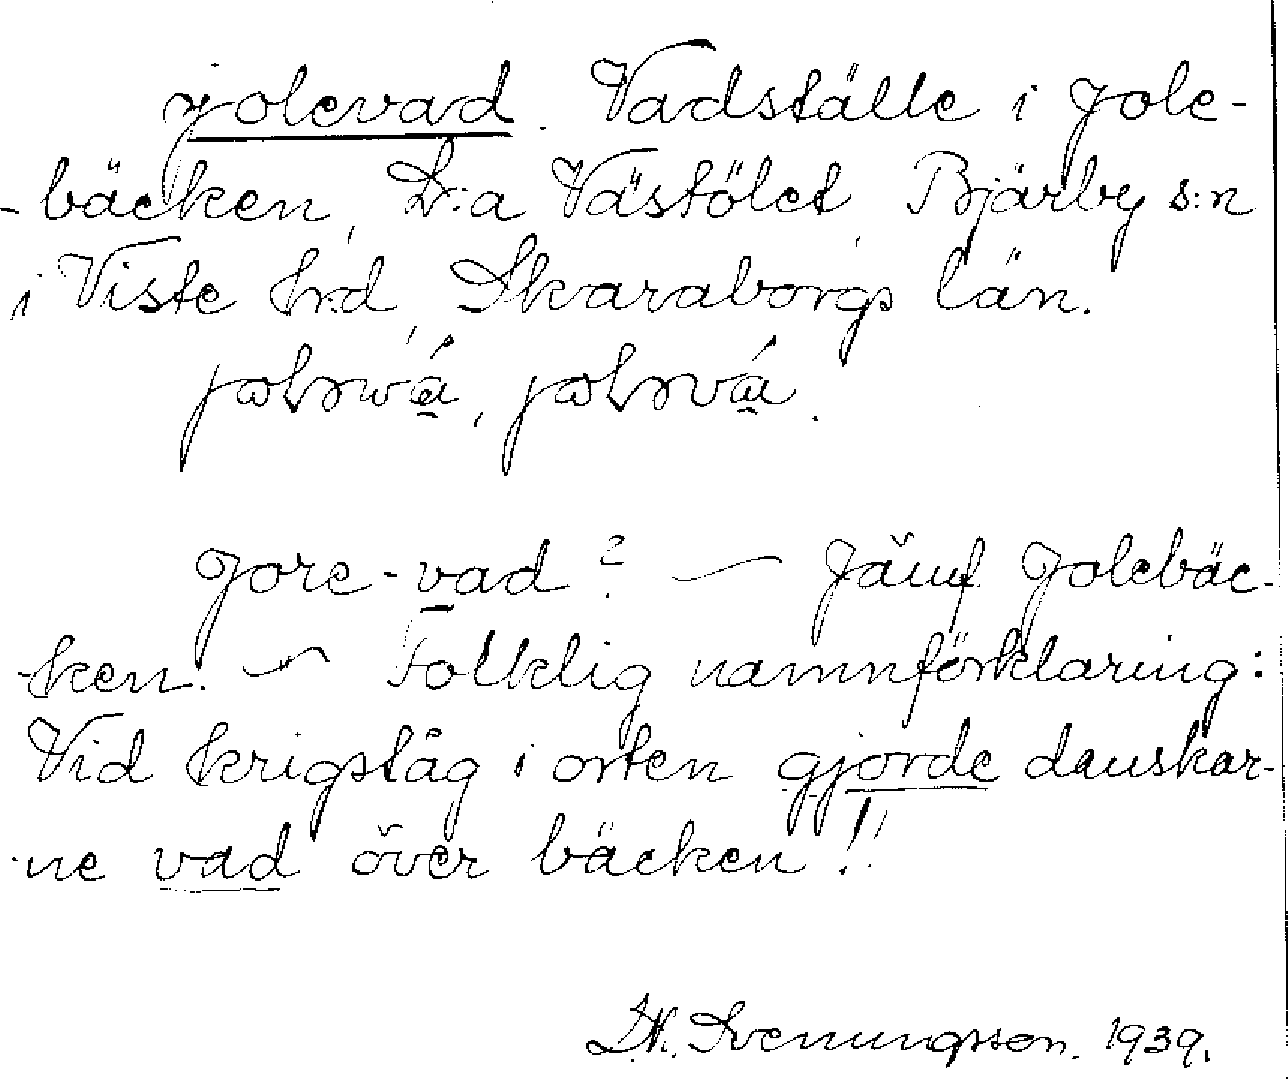 jolevad. Vadställe i Jole-
-bäcken, St:a Västölet, Bjärby s:n
i Viste h:d, Skaraborgs län.
Jore-vad? — Jämf Jolebäc-
-ken. — Folklig namnförklaring:
Vid krigståg i orten gjorde danskar-
-ne vad över bäcken!!
Svenungsson. 1939.